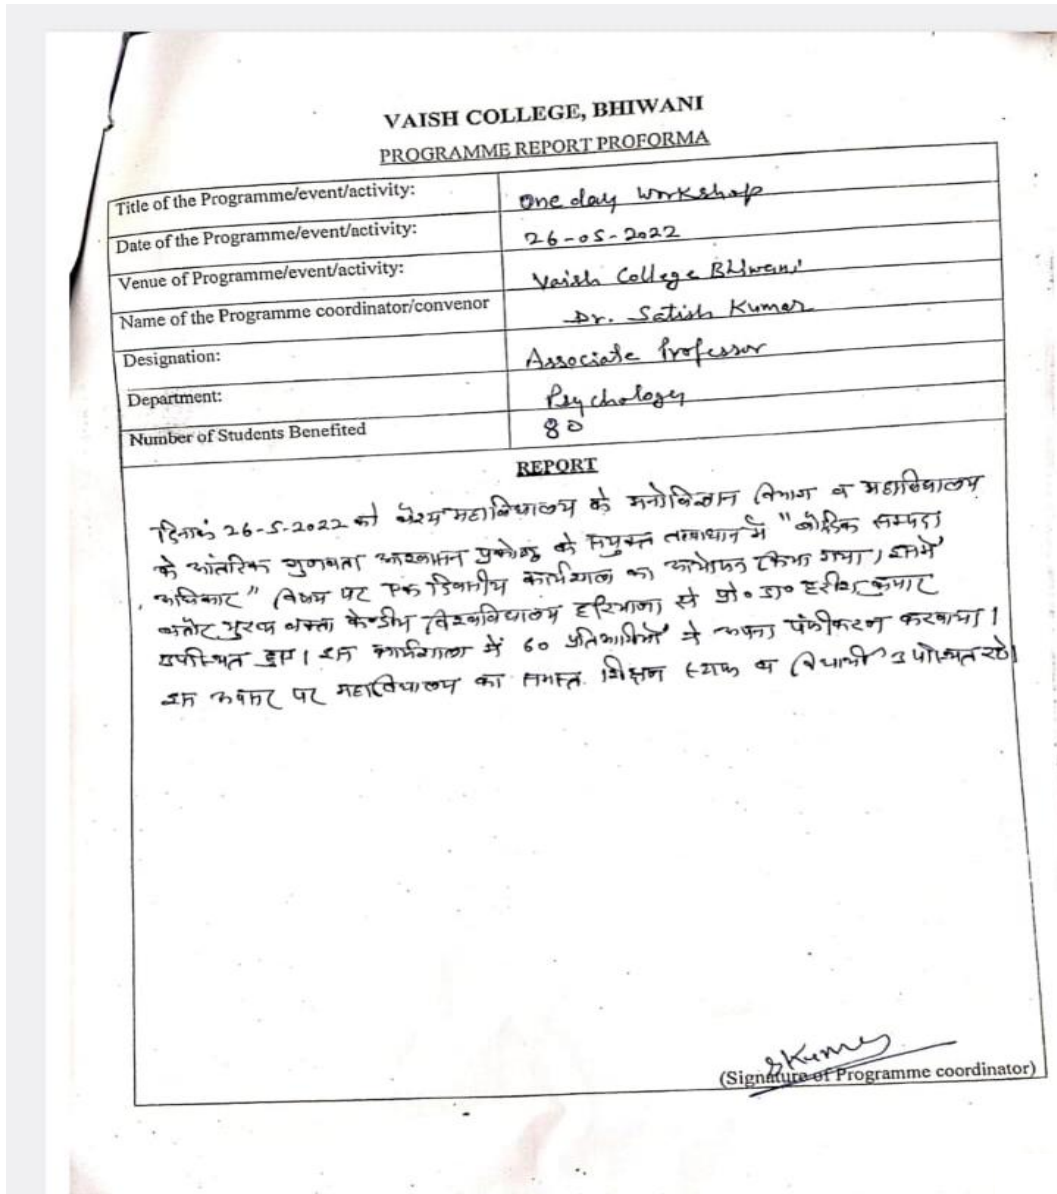 VAISH COLLEGE, BHIWANI
PROGRAMME REPORT PROFORMA
Title of the Programme/event/activity: One day Workshop
Date of the Programme/event/activity: 26-05-2022
Venue of Programme/event/activity: Vaish College Bhiwani
Name of the Programme coordinator/convenor Dr. Satish Kumar
Designation: Associate Professor
Department: Psychology
Number of Students Benefited 80
REPORT
दिनांक 26-5-2022 को वैश्य महाविद्यालय के मनोविज्ञान विभाग व महाविद्यालय
के आंतरिक गुणवता आश्वासन प्रकोष्ठ के सयुक्त तत्वाधान में "बौद्धिक सम्पदा
अधिकार" विषय पर एक दिवसीय कार्यशाला का आयोजन किया गया। इसमें
बतौर मुख्य वक्ता केन्द्रीय विश्वविद्यालय हरियाणा से प्रो० डा० हरीश कुमार
उपस्थित हुए। इस कार्यशाला में 60 प्रतिभागियों ने अपना पंजीकरण करवाया।
इस अवसर पर महाविद्यालय का समस्त शिक्षण स्टाफ व विद्यार्थी उपस्थित रहे।
SKumar
(Signature of Programme coordinator)